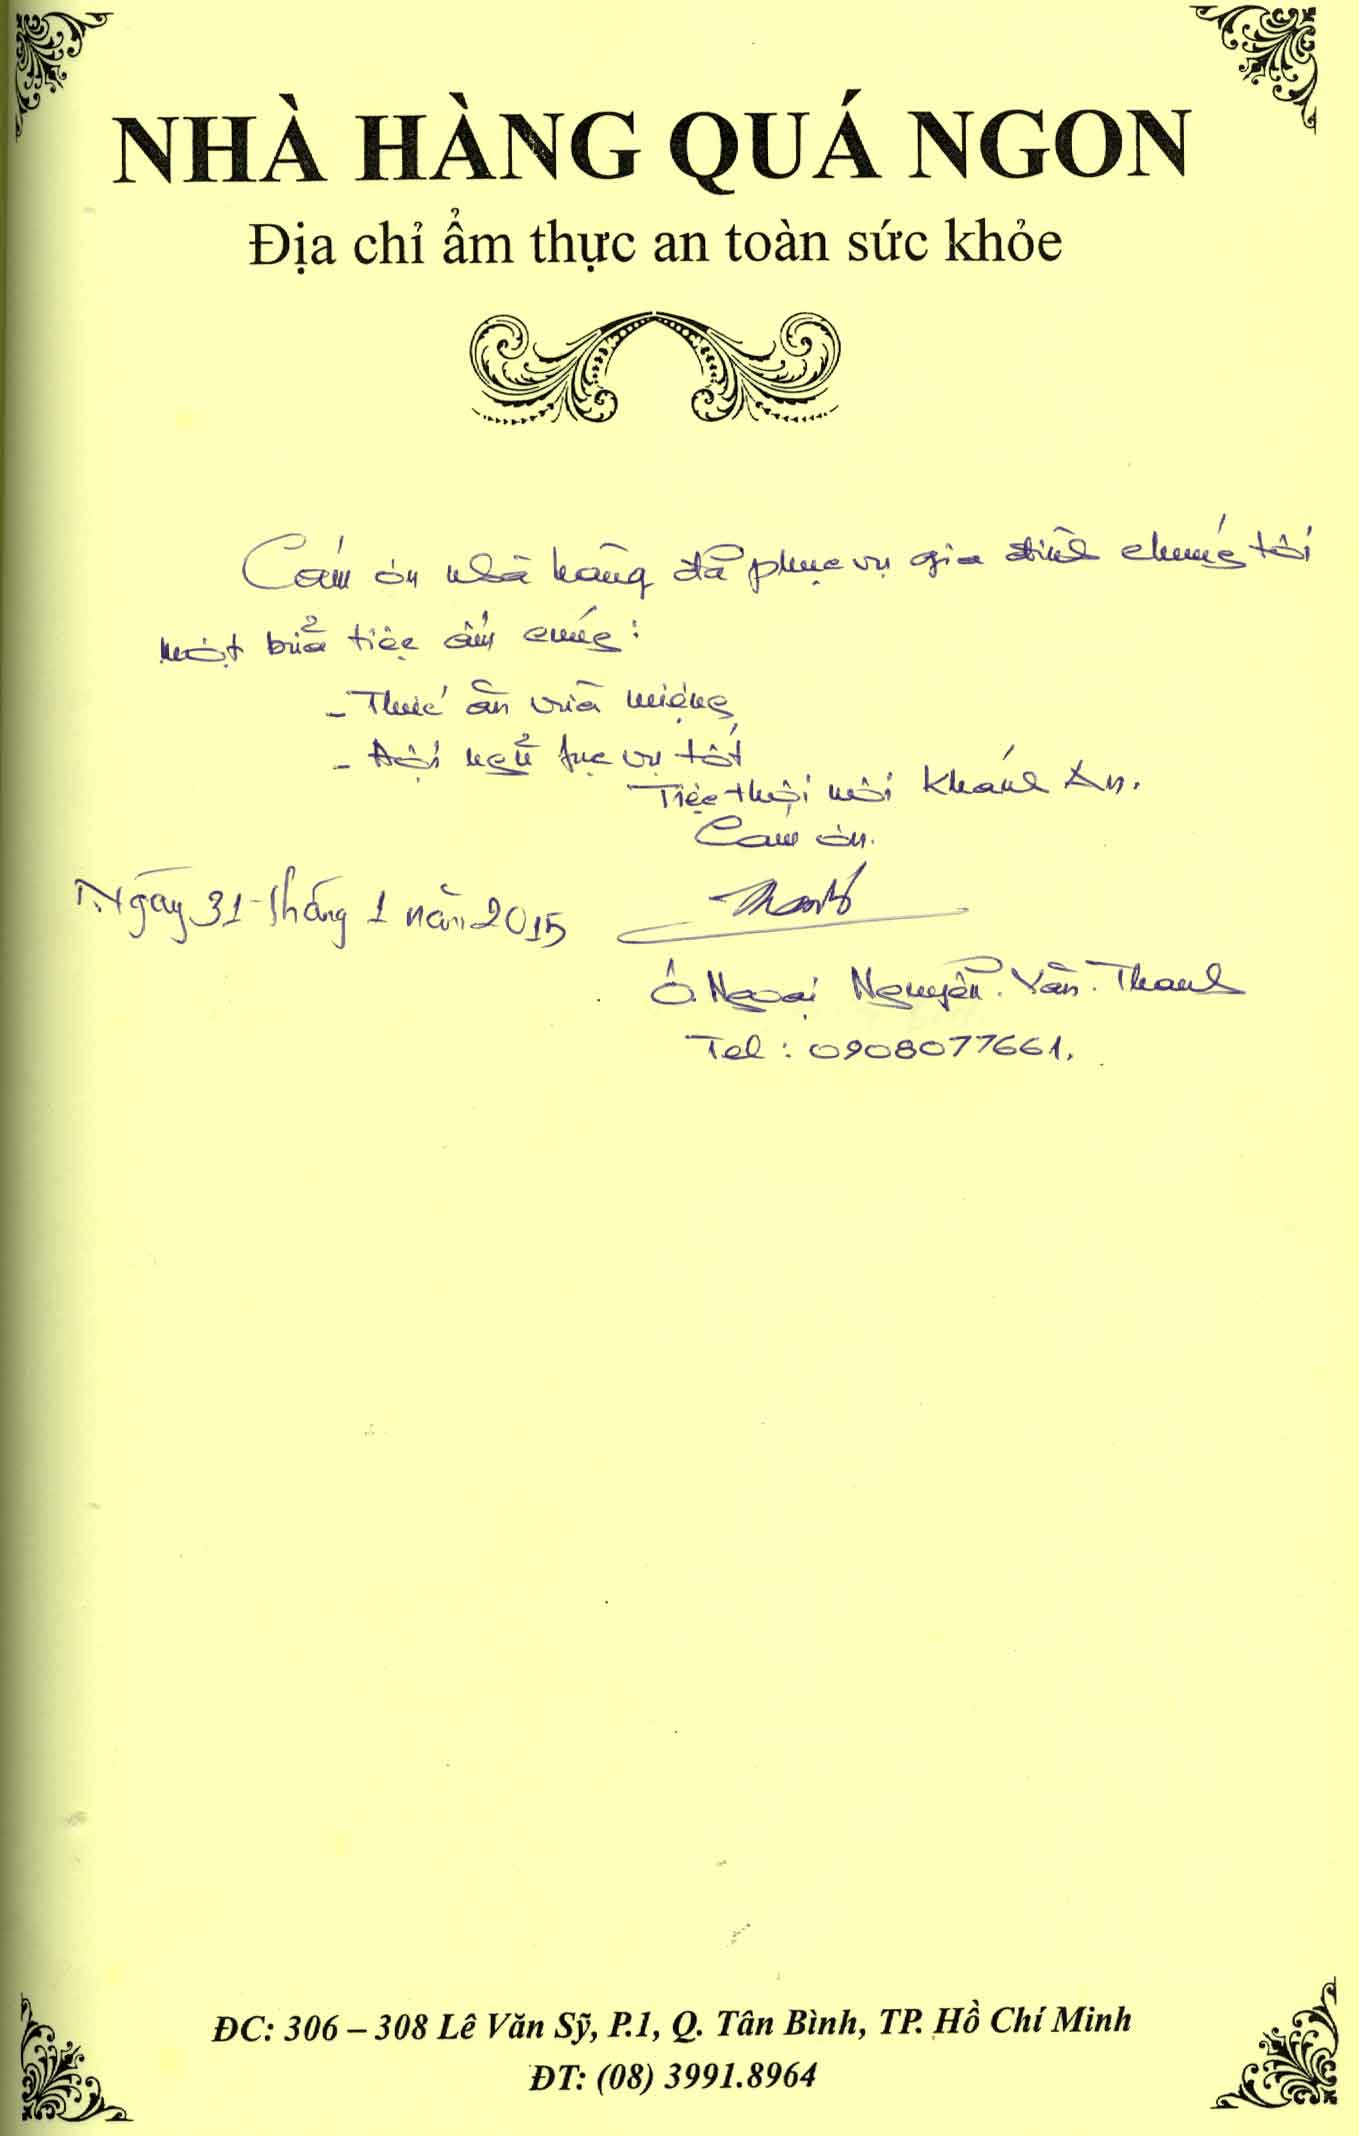 NHÀ HÀNG QUÁ NGON
Địa chỉ ẩm thực an toàn sức khỏe
Cám ơn nhà hàng đã phục vụ gia đình chúng tôi
một buổi tiệc ấm cúng:
- Thức ăn vừa miệng
- Đội ngũ fục vụ tốt
Tiệc thôi nôi Khánh An.
Cám ơn.
Ngày 31 tháng 1 năm 2015
Thanh
Ô. Ngoại Nguyễn. Văn. Thanh
Tel : 0908077661.
ĐC: 306 – 308 Lê Văn Sỹ, P.1, Q. Tân Bình, TP. Hồ Chí Minh
ĐT: (08) 3991.8964